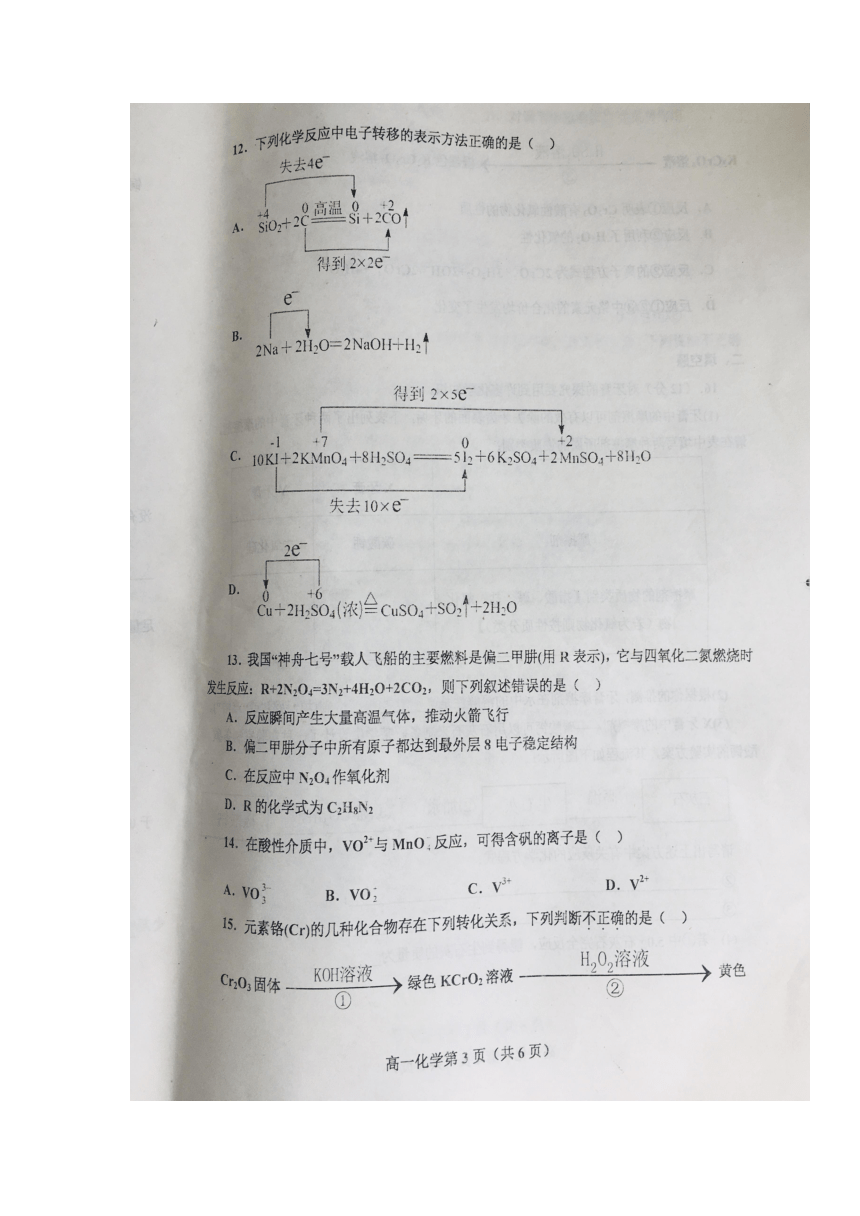 12. 下列化学反应中电子转移的表示方法正确的是（ ）
失去4e⁻
+4 0 0 +2
A. SiO₂+2C 高温 Si+2CO↑
得到 2×2e⁻
e⁻
B. 2Na+2H₂O=2NaOH+H₂↑
得到 2×5e⁻
-1 +7 0 +2
C. 10KI+2KMnO₄+8H₂SO₄══5I₂+6K₂SO₄+2MnSO₄+8H₂O
失去10×e⁻
2e⁻
0 +6
D. Cu+2H₂SO₄(浓)≜CuSO₄+SO₂↑+2H₂O
13. 我国“神舟七号”载人飞船的主要燃料是偏二甲肼(用 R 表示)，它与四氧化二氮燃烧时
发生反应：R+2N₂O₄=3N₂+4H₂O+2CO₂，则下列叙述错误的是（ ）
A．反应瞬间产生大量高温气体，推动火箭飞行
B．偏二甲肼分子中所有原子都达到最外层 8 电子稳定结构
C．在反应中 N₂O₄ 作氧化剂
D．R 的化学式为 C₂H₈N₂
14. 在酸性介质中，VO²⁺与 MnO₄⁻反应，可得含矾的离子是（ ）
A. VO₃³⁻ B. VO₂⁺ C. V³⁺ D. V²⁺
15. 元素铬(Cr)的几种化合物存在下列转化关系，下列判断不正确的是（ ）
Cr₂O₃固体 KOH溶液 ① 绿色 KCrO₂ 溶液 H₂O₂溶液 ② 黄色
高一化学第 3 页（共 6 页）